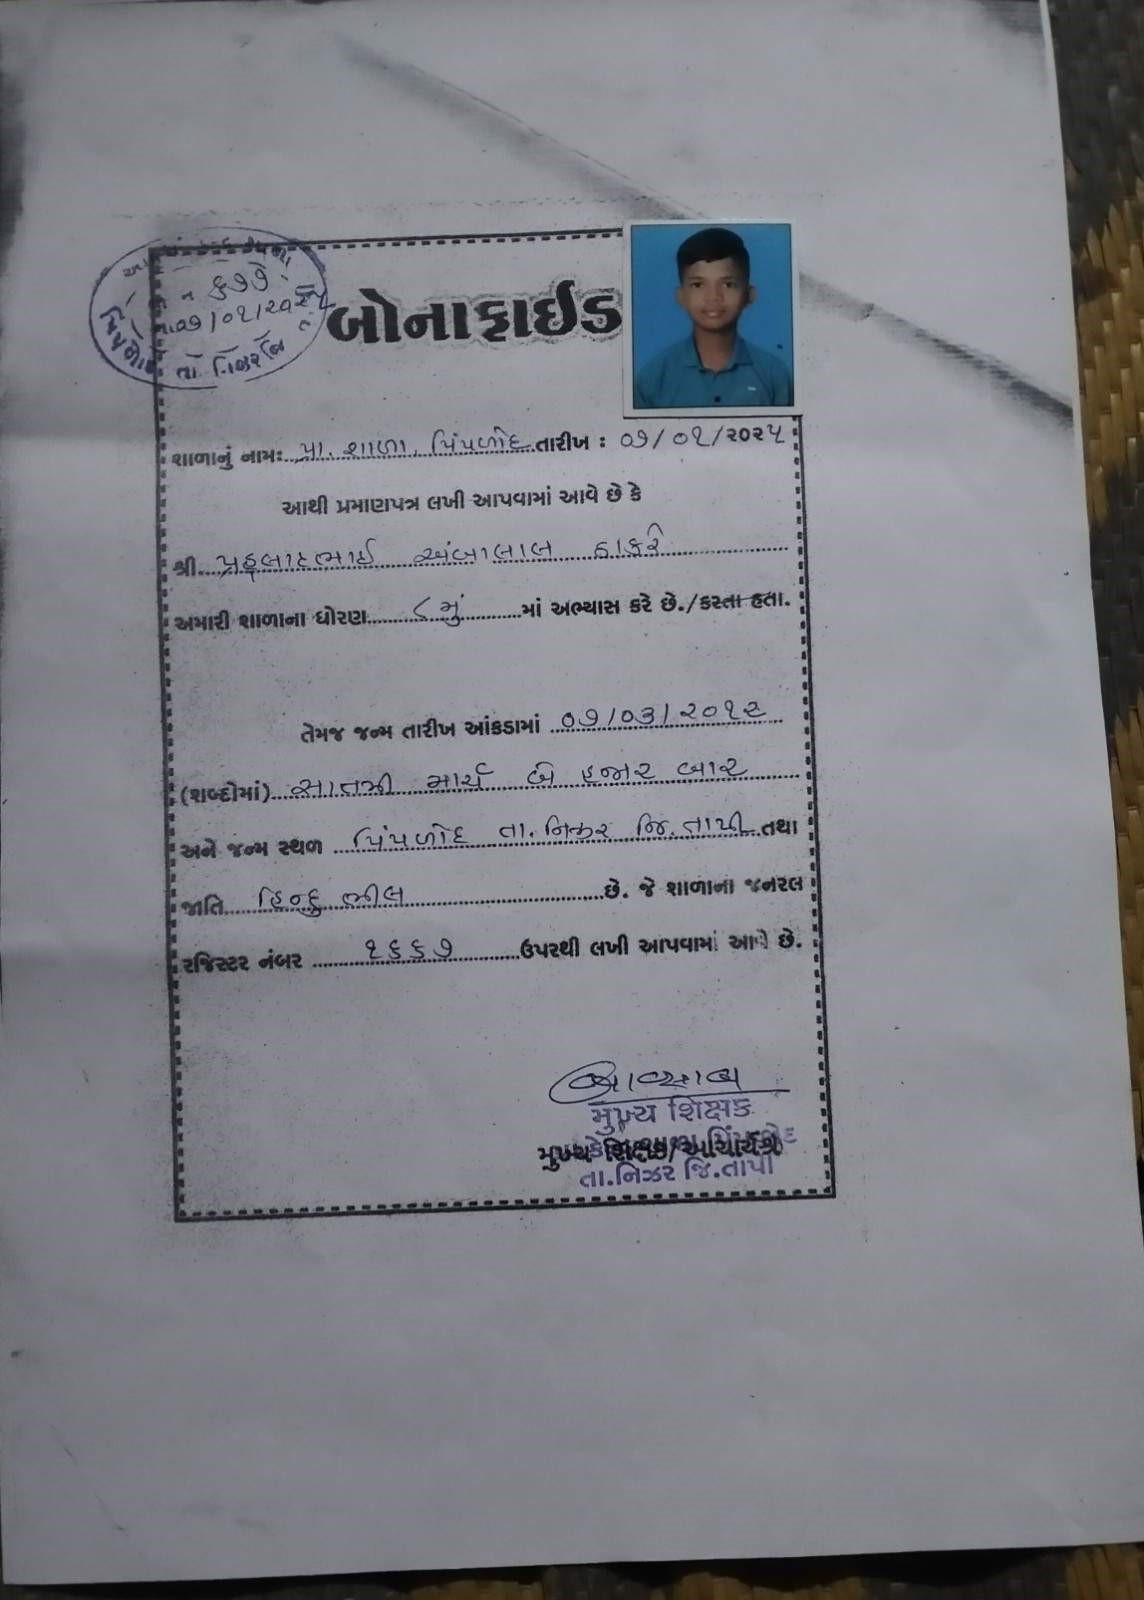 ક ૭૭
૦૭/૦૧/૨૦૨૫
તા. નિઝર જિ.
બોનાફાઈડ
શાળાનું નામઃ પ્રા. શાળા, પિંપળોદ તારીખ : ૦૭/૦૧/૨૦૨૫
આથી પ્રમાણપત્ર લખી આપવામાં આવે છે કે
શ્રી પ્રહ્લાદભાઈ અંબાલાલ ઠાકરે
અમારી શાળાના ધોરણ ૮ મું માં અભ્યાસ કરે છે./કરતા હતા.
તેમજ જન્મ તારીખ આંકડામાં ૦૭/૦૩/૨૦૧૨
(શબ્દોમાં) સાતમી માર્ચ બે હજાર બાર
અને જન્મ સ્થળ પિંપળોદ તા. નિઝર જિ. તાપી તથા
જાતિ હિન્દુ ભીલ છે. જે શાળાના જનરલ
રજિસ્ટર નંબર ૧૬૬૭ ઉપરથી લખી આપવામાં આવે છે.
મુખ્ય શિક્ષક
મુખ્ય શિક્ષક/આચાર્યશ્રી
તા.નિઝર જિ.તાપી